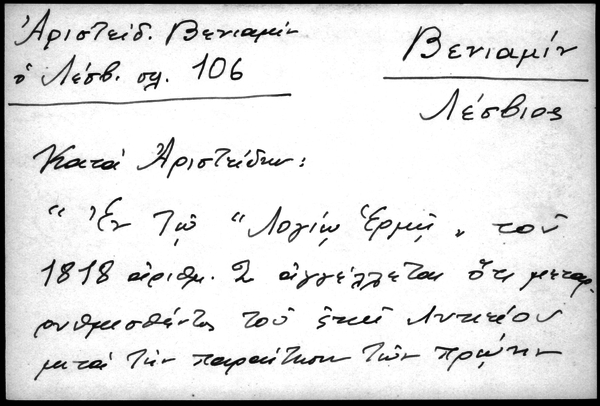 Ἀριστείδ. Βενιαμὶν
ὁ Λέσβ. σλ. 106
Βενιαμίν
Λέσβιος
Κατὰ Ἀριστείδην:
“ Ἐν τῷ “ Λογίῳ Ἑρμῇ „ τοῦ
1818 ἀριθμ. 2 ἀγγέλλεται ὅτι μεταρ-
ρυθμισθέντος τοῦ ἐκεῖ Λυκείου
μετὰ τὴν παραίτησιν τῶν πρῴην